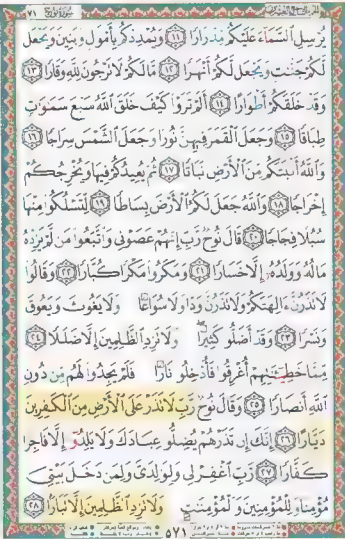 ٧١ سورة نوح
يُرْسِلِ السَّمَاءَ عَلَيْكُمْ مِدْرَارًا ﴿١١﴾ وَيُمْدِدْكُمْ بِأَمْوَالٍ وَبَنِينَ وَيَجْعَلْ
لَكُمْ جَنَّاتٍ وَيَجْعَلْ لَكُمْ أَنْهَارًا ﴿١٢﴾ مَا لَكُمْ لَا تَرْجُونَ لِلَّهِ وَقَارًا ﴿١٣﴾
وَقَدْ خَلَقَكُمْ أَطْوَارًا ﴿١٤﴾ أَلَمْ تَرَوْا كَيْفَ خَلَقَ اللَّهُ سَبْعَ سَمَاوَاتٍ
طِبَاقًا ﴿١٥﴾ وَجَعَلَ الْقَمَرَ فِيهِنَّ نُورًا وَجَعَلَ الشَّمْسَ سِرَاجًا ﴿١٦﴾
وَاللَّهُ أَنْبَتَكُمْ مِنَ الْأَرْضِ نَبَاتًا ﴿١٧﴾ ثُمَّ يُعِيدُكُمْ فِيهَا وَيُخْرِجُكُمْ
إِخْرَاجًا ﴿١٨﴾ وَاللَّهُ جَعَلَ لَكُمُ الْأَرْضَ بِسَاطًا ﴿١٩﴾ لِتَسْلُكُوا مِنْهَا
سُبُلًا فِجَاجًا ﴿٢٠﴾ قَالَ نُوحٌ رَبِّ إِنَّهُمْ عَصَوْنِي وَاتَّبَعُوا مَنْ لَمْ يَزِدْهُ
مَالُهُ وَوَلَدُهُ إِلَّا خَسَارًا ﴿٢١﴾ وَمَكَرُوا مَكْرًا كُبَّارًا ﴿٢٢﴾ وَقَالُوا
لَا تَذَرُنَّ آلِهَتَكُمْ وَلَا تَذَرُنَّ وَدًّا وَلَا سُوَاعًا وَلَا يَغُوثَ وَيَعُوقَ
وَنَسْرًا ﴿٢٣﴾ وَقَدْ أَضَلُّوا كَثِيرًا وَلَا تَزِدِ الظَّالِمِينَ إِلَّا ضَلَالًا ﴿٢٤﴾
مِمَّا خَطِيئَاتِهِمْ أُغْرِقُوا فَأُدْخِلُوا نَارًا فَلَمْ يَجِدُوا لَهُمْ مِنْ دُونِ
اللَّهِ أَنْصَارًا ﴿٢٥﴾ وَقَالَ نُوحٌ رَبِّ لَا تَذَرْ عَلَى الْأَرْضِ مِنَ الْكَافِرِينَ
دَيَّارًا ﴿٢٦﴾ إِنَّكَ إِنْ تَذَرْهُمْ يُضِلُّوا عِبَادَكَ وَلَا يَلِدُوا إِلَّا فَاجِرًا
كَفَّارًا ﴿٢٧﴾ رَبِّ اغْفِرْ لِي وَلِوَالِدَيَّ وَلِمَنْ دَخَلَ بَيْتِيَ
مُؤْمِنًا وَلِلْمُؤْمِنِينَ وَالْمُؤْمِنَاتِ وَلَا تَزِدِ الظَّالِمِينَ إِلَّا تَبَارًا ﴿٢٨﴾
٥٧١